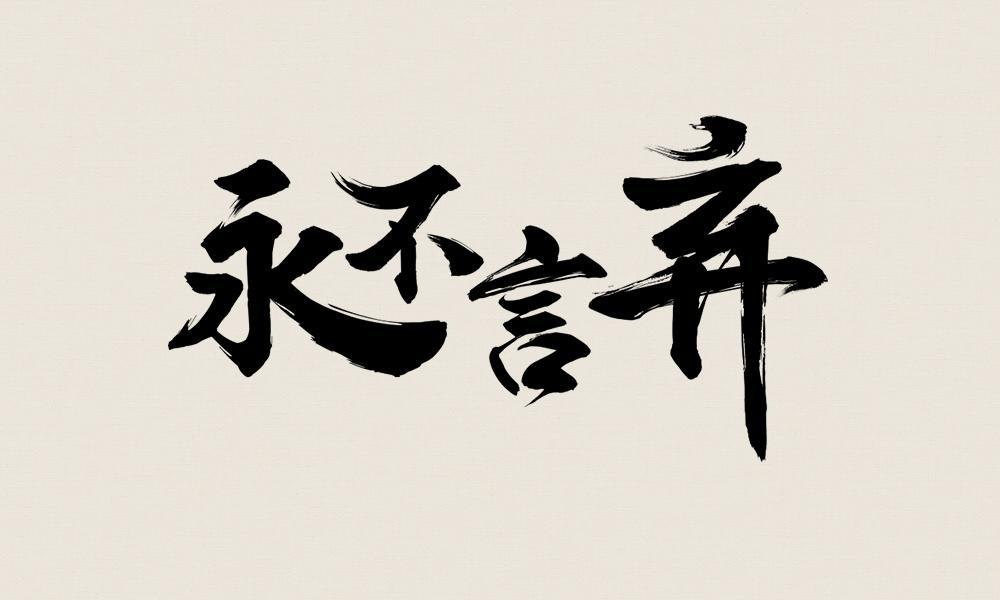 永不言弃